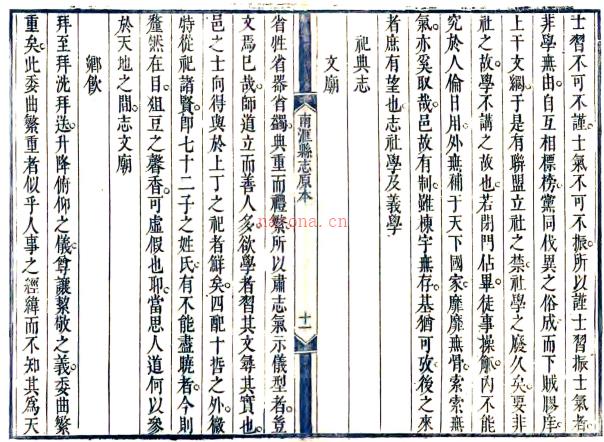 士習不可不謹士氣不可不振所以謹士習振士氣者
非學無由自互相標榜黨同伐異之俗成而下賊膠庠
上干文網于是有聯盟立社之禁社學之廢久矣要非
社之故學不講之故也若閉門佔畢徒事操觚內不能
究於人倫日用外無補于天下國家靡靡無骨索索無
氣亦奚取哉邑故有制雖棟宇無存基猶可攷後之來
者庶有望也志社學及義學
祀典志
文廟
南滙縣志原本
十一
省牲省器省蠲典重而禮繁所以肅志氣示儀型者豈
文焉巳哉師道立而善人多欲學者習其文尋其實也
邑之士向得與於上丁之祀者鮮矣四配十哲之外微
特從祀諸賢即七十二子之姓氏有不能盡曉者今則
犖然在目俎豆之馨香可虛假也聊當思人道何以參
於天地之間志文廟
鄉飲
拜至拜洗拜送升降俯仰之儀尊讓絜敬之義委曲繁
重矣此委曲繁重者似乎人事之經緯而不知其爲天
nanona.cn